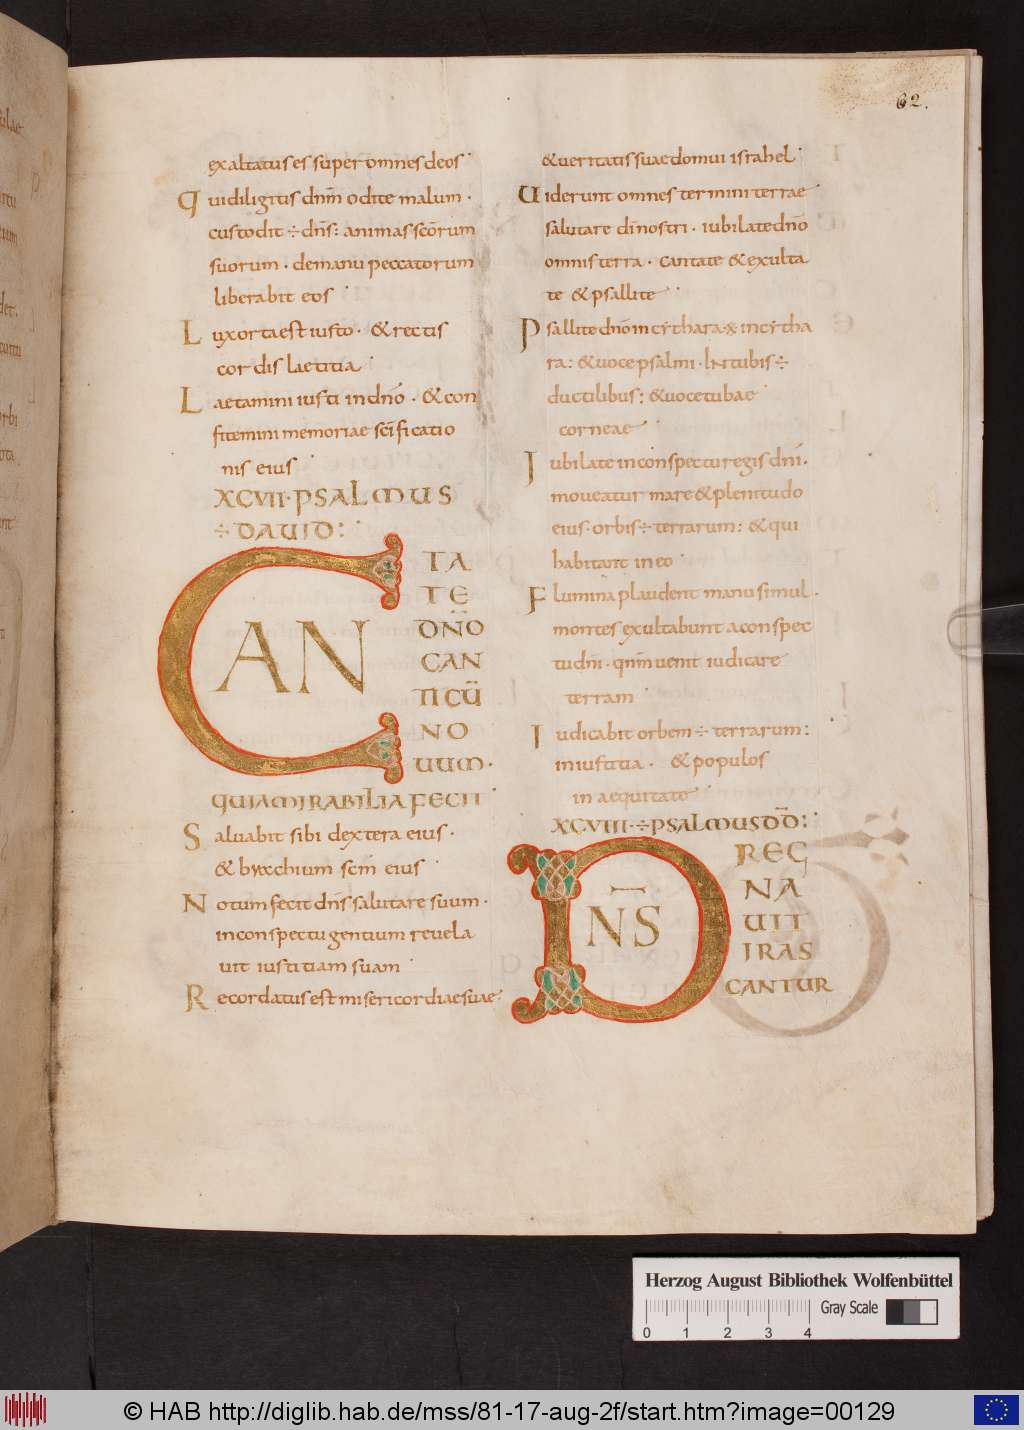 62.
exaltatus es super omnes deos·
Qui diligitis dnm̄ odite malum·
custodit ÷ dn̄s: animas scōrum
suorum· de manu peccatorum
liberabit eos·
Lux orta est iusto· & rectis
cordis laetitia·
Laetamini iusti in dnō· & con
fitemini memoriae scīficatio
nis eius·
XCVII· PSALMUS
÷ DAUID:·
CAN
TA
TE
DN̄O
CAN
TICŪ
NO
UUM·
QUIA MIRABILIA FECIT·
Saluabit sibi dextera eius·
& brachium scm̄ eius·
Notum fecit dn̄s salutare suum·
in conspectu gentium reuela
uit iustitiam suam·
Recordatus est misericordiae suae·
& ueritatis suae domui israhel·
Uiderunt omnes termini terrae
salutare dī nostri· iubilate dnō
omnis terra· cantate & exulta
te & psallite·
Psallite dnō in cythara ※ in cytha
ra: & uoce psalmi· In tubis ÷
ductilibus: & uoce tubae
corneae·
Iubilate in conspectu regis dnī·
moueatur mare & plenitudo
eius· orbis ÷ terrarum: & qui
habitant in eo·
Flumina plaudent manu simul·
montes exultabunt a conspec
tu dnī· qnm̄ uenit iudicare
terram·
Iudicabit orbem ÷ terrarum:
in iustitia· & populos
in aequitate·
XCVIII· ÷ PSALMUS DD̄:·
DN̄S
REG
NA
UIT
IRAS
CANTUR
Herzog August Bibliothek Wolfenbüttel
Gray Scale
0 1 2 3 4
© HAB http://diglib.hab.de/mss/81-17-aug-2f/start.htm?image=00129